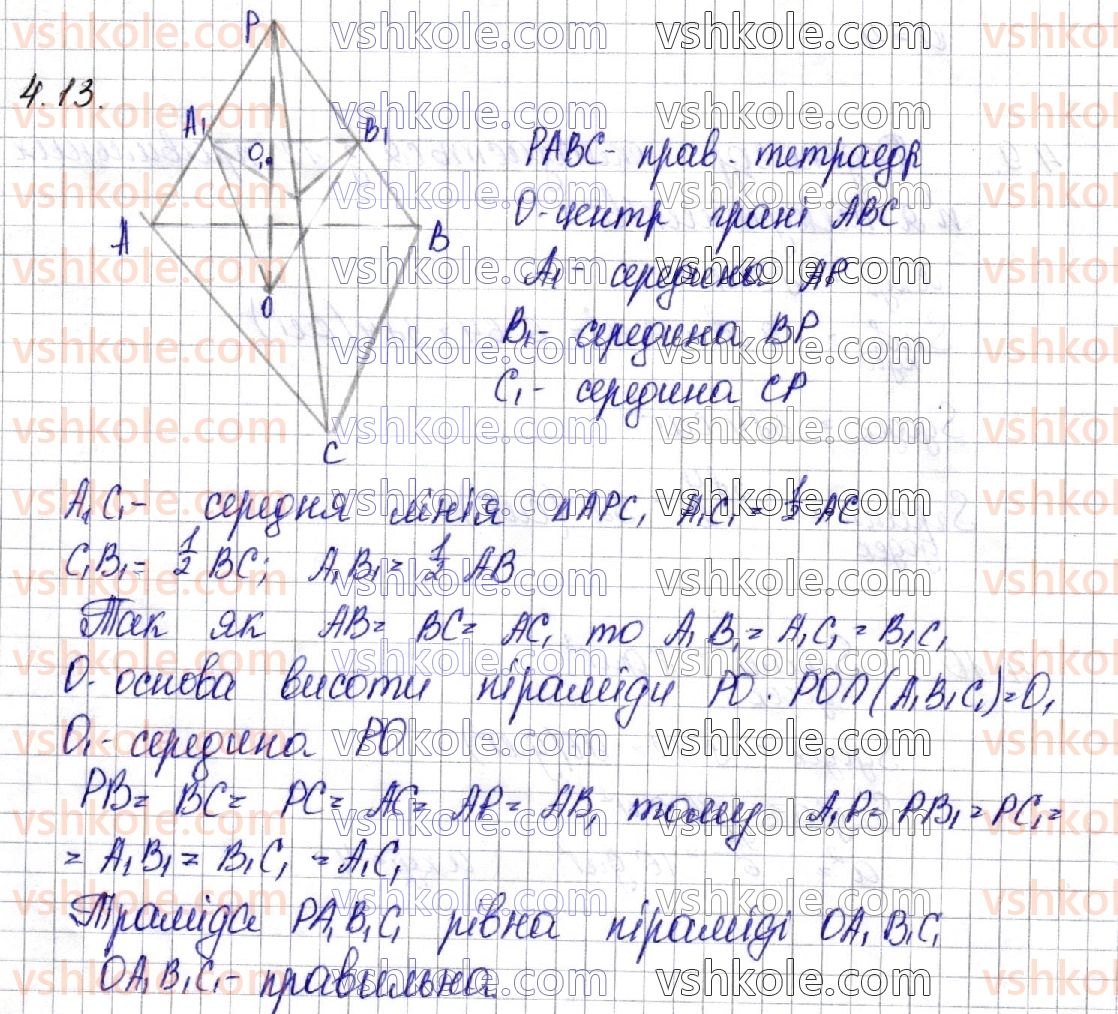 4.13.
P
A₁
B₁
O₁
A
B
O
C
PABC - прав. тетраедр
O - центр грані ABC
A₁ - середина AP
B₁ - середина BP
C₁ - середина CP
A₁C₁ - середня лінія ΔAPC, A₁C₁ = 1/2 AC
C₁B₁ = 1/2 BC; A₁B₁ = 1/2 AB
Так як AB = BC = AC, то A₁B₁ = A₁C₁ = B₁C₁
O - основа висоти піраміди PO. PO∩(A₁B₁C₁) = O₁
O₁ - середина PO
PB = BC = PC = AC = AP = AB, тому A₁P = PB₁ = PC₁ =
= A₁B₁ = B₁C₁ = A₁C₁
Піраміда PA₁B₁C₁ рівна піраміді OA₁B₁C₁
OA₁B₁C₁ - правильна.
vshkole.com